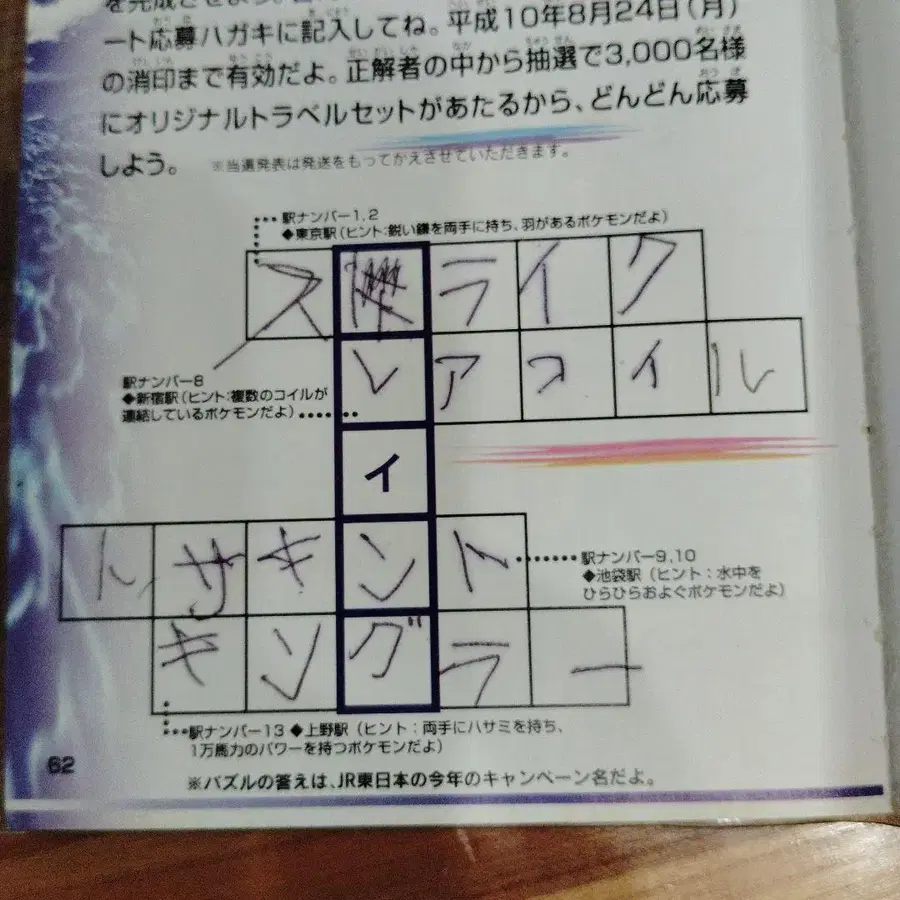 を完成させよう。
ート応募ハガキに記入してね。平成10年8月24日(月)
の消印まで有効だよ。正解者の中から抽選で3,000名様
にオリジナルトラベルセットがあたるから、どんどん応募
しよう。 ※当選発表は発送をもってかえさせていただきます。
駅ナンバー1,2
◆東京駅(ヒント:鋭い鎌を両手に持ち、羽があるポケモンだよ)
ス ラ イ ク
駅ナンバー8
◆新宿駅(ヒント:複数のコイルが
連結しているポケモンだよ)
レ ア コ イ ル
イ
ト サ キ ン ト
駅ナンバー9,10
◆池袋駅(ヒント:水中を
ひらひらおよぐポケモンだよ)
キ ン グ ラ ー
駅ナンバー13 ◆上野駅(ヒント:両手にハサミを持ち、
1万馬力のパワーを持つポケモンだよ)
62
※パズルの答えは、JR東日本の今年のキャンペーン名だよ。